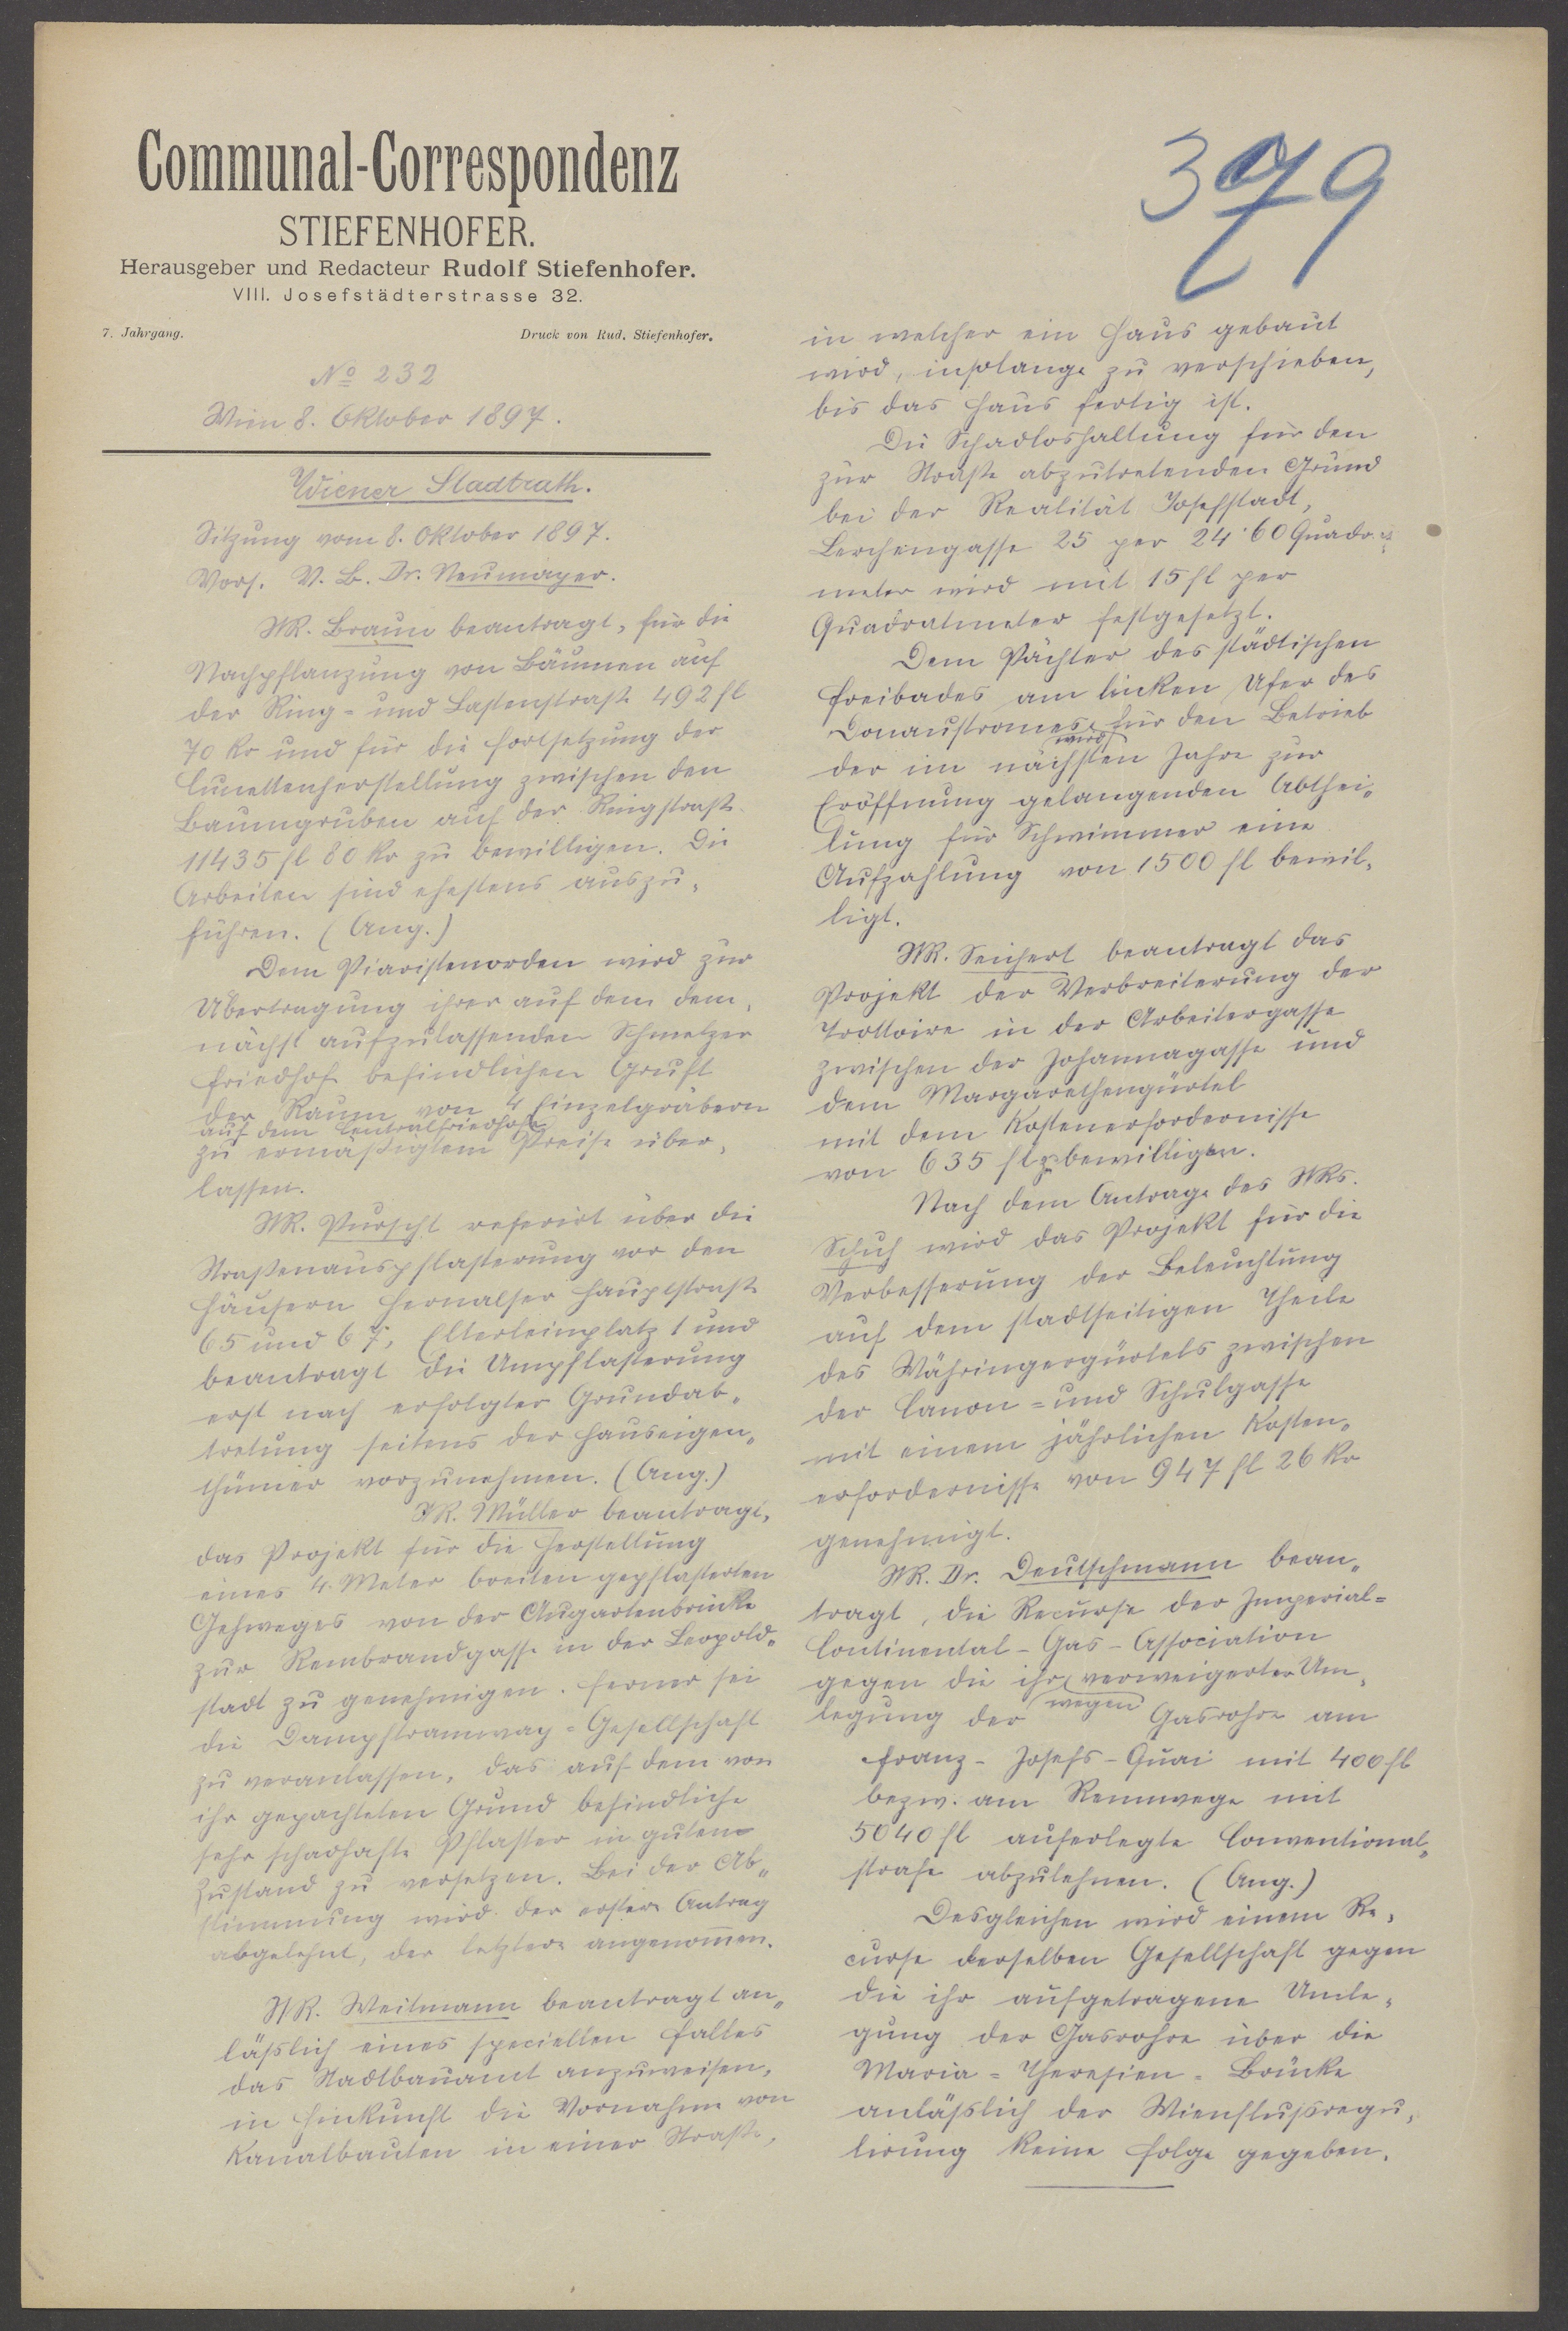 Communal-Correspondenz
STIEFENHOFER.
Herausgeber und Redacteur Rudolf Stiefenhofer.
VIII. Josefstädterstrasse 32.
7. Jahrgang. Druck von Rud. Stiefenhofer.
No 232
Wien 8. Oktober 1897.
Wiener Stadtrath.
Sitzung vom 8. Oktober 1897.
Vors. V. B. Dr. Neumayer.
StR. Braun beantragt, für die
Nachpflanzung von Bäumen auf
der Ring- und Lastenstraße 492 fl
70 kr und für die Fortsetzung der
Lunettenherstellung zwischen den
Baumgruben auf der Ringstraße
11435 fl 80 kr zu bewilligen. Die
Arbeiten sind ehestens auszu„
führen. (Ang.)
Dem Piaristenorden wird zur
Übertragung ihrer auf dem dem„
nächst aufzulassenden Schmelzer
Friedhof befindlichen Gruft
der Raum von 4 Einzelgräbern
auf dem Centralfriedhofe
zu ermäßigtem Preise über„
lassen.
StR. Purscht referirt über die
Straßenauspflasterung vor den
Häusern Hernalser Hauptstraße
65 und 67, Elterleinplatz 1 und
beantragt die Umpflasterung
erst nach erfolgter Grundab„
tretung seitens der Hauseigen„
thümer vorzunehmen. (Ang.)
StR. Müller beantragt,
das Projekt für die Herstellung
eines 4. Meter breiten gepflasterten
Gehweges von der Augartenbrücke
zur Rembrandgasse in der Leopold„
stadt zu genehmigen. Ferner sei
die Dampftramway-Gesellschaft
zu veranlassen, das auf dem von
ihr gepachteten Grund befindliche
sehr schadhafte Pflaster in guten
Zustand zu versetzen. Bei der Ab„
stimmung wird der erstere Antrag
abgelehnt, der letztere angenom̄en.
StR. Weitmann beantragt an„
läßlich eines speciellen Falles
das Stadtbauamt anzuweisen,
in Hinkunft die Vornahme von
Kanalbauten in einer Straße,
379
in welcher ein Haus gebaut
wird, insolange zu verschieben,
bis das Haus fertig ist.
Die Schadloshaltung für den
zur Straße abzutretenden Grund
bei der Realität Josefstadt,
Lerchengasse 25 per 24·60 Quadrat„
meter wird mit 15 fl per
Quadratmeter festgesetzt.
Dem Pächter des städtischen
Freibades am linken Ufer des
Donaustromes für den Betrieb
wird
der im nächsten Jahre zur
Eröffnung gelangenden Abthei„
lung für Schwimmer eine
Aufzahlung von 1500 fl bewil„
ligt.
StR. Seichert beantragt das
Projekt der Verbreiterung der
Trottoire in der Arbeitergasse
zwischen der Johannagasse und
dem Margarethengürtel
mit dem Kostenerfordernisse
von 635 fl zu bewilligen.
Nach dem Antrage des StRs.
Schuh wird das Projekt für die
Verbesserung der Beleuchtung
auf dem stadtseitigen Theile
des Währingergürtels zwischen
der Canon- und Schulgasse
mit einem jährlichen Kosten„
erfordernisse von 947 fl 26 kr
genehmigt.
StR. Dr. Deutschmann bean„
tragt, die Recurse der Imperial-
Continental-Gas-Association
gegen die ihr verweigerter Um„
wegen
legung der Gasrohre am
Franz-Josefs-Quai mit 400 fl
bezw. am Rennwege mit
5040 fl auferlegte Conventional„
strafe abzulehnen. (Ang.)
Desgleichen wird einem Re„
curse derselben Gesellschaft gegen
die ihr aufgetragene Umle„
gung der Gasrohre über die
Maria-Theresien-Brücke
anläßlich der Wienflußregu„
lirung keine Folge gegeben.